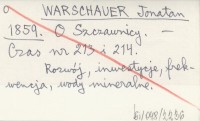 o WARSCHAUER Jonatan
1859. O Szczawnicy. —
Czas nr 213 i 214.
Rozwój, inwestycje, frek-
wencja, wody mineralne.